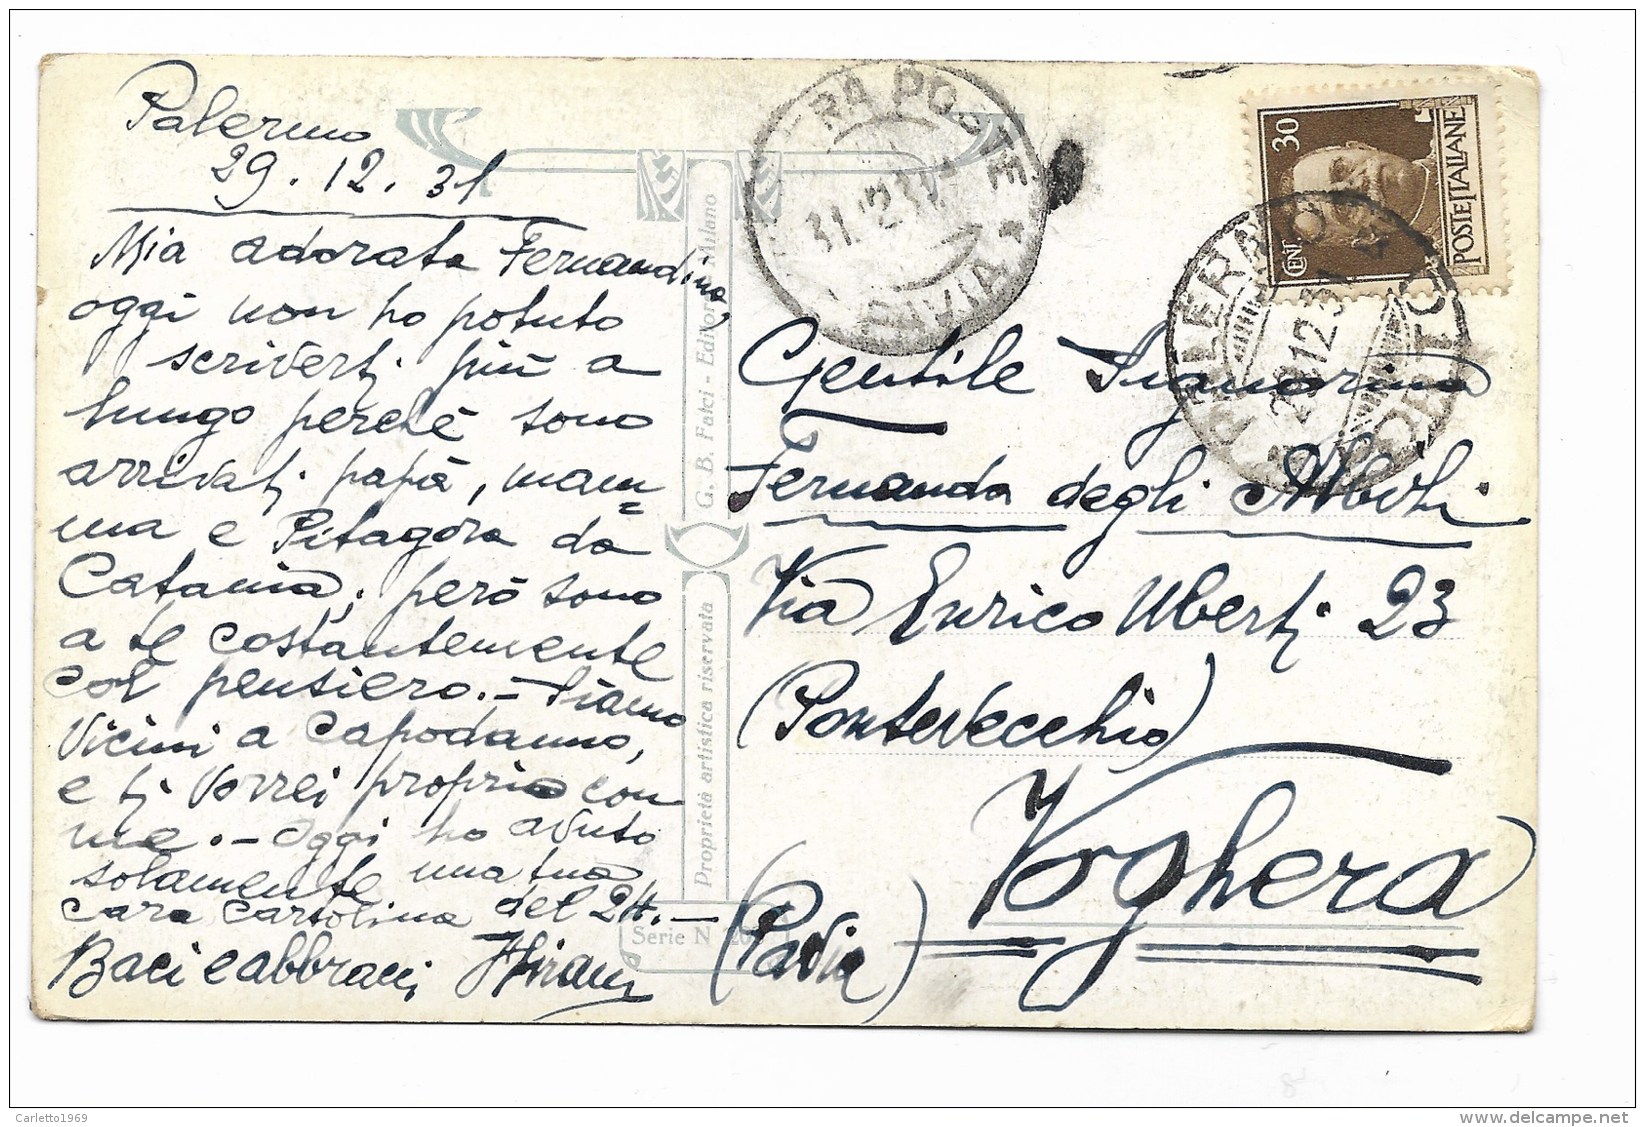 Palermo
29.12.31
Mia adorata Fernandina,
oggi non ho potuto
scriverti più a
lungo perchè sono
arrivati papà, mam=
ma e Pitagora da
Catania; però sono
a te costantemente
col pensiero.- Siamo
vicini a Capodanno,
e ti vorrei proprio con
me.- Oggi ho avuto
solamente una tua
cara cartolina del 24.-
Baci e abbracci
G. B. Falci - Editore Milano
Proprietà artistica riservata
Serie N
POSTE
31.12.31
PAVIA
30
CENT
POSTE ITALIANE
PALERMO PORTO
29.12.31
Gentile Signorina
Fernanda degli Alberti
Via Enrico Uberti 23
(Pontevecchio)
Voghera
(Pavia)
Carletto1969
delcampe.net